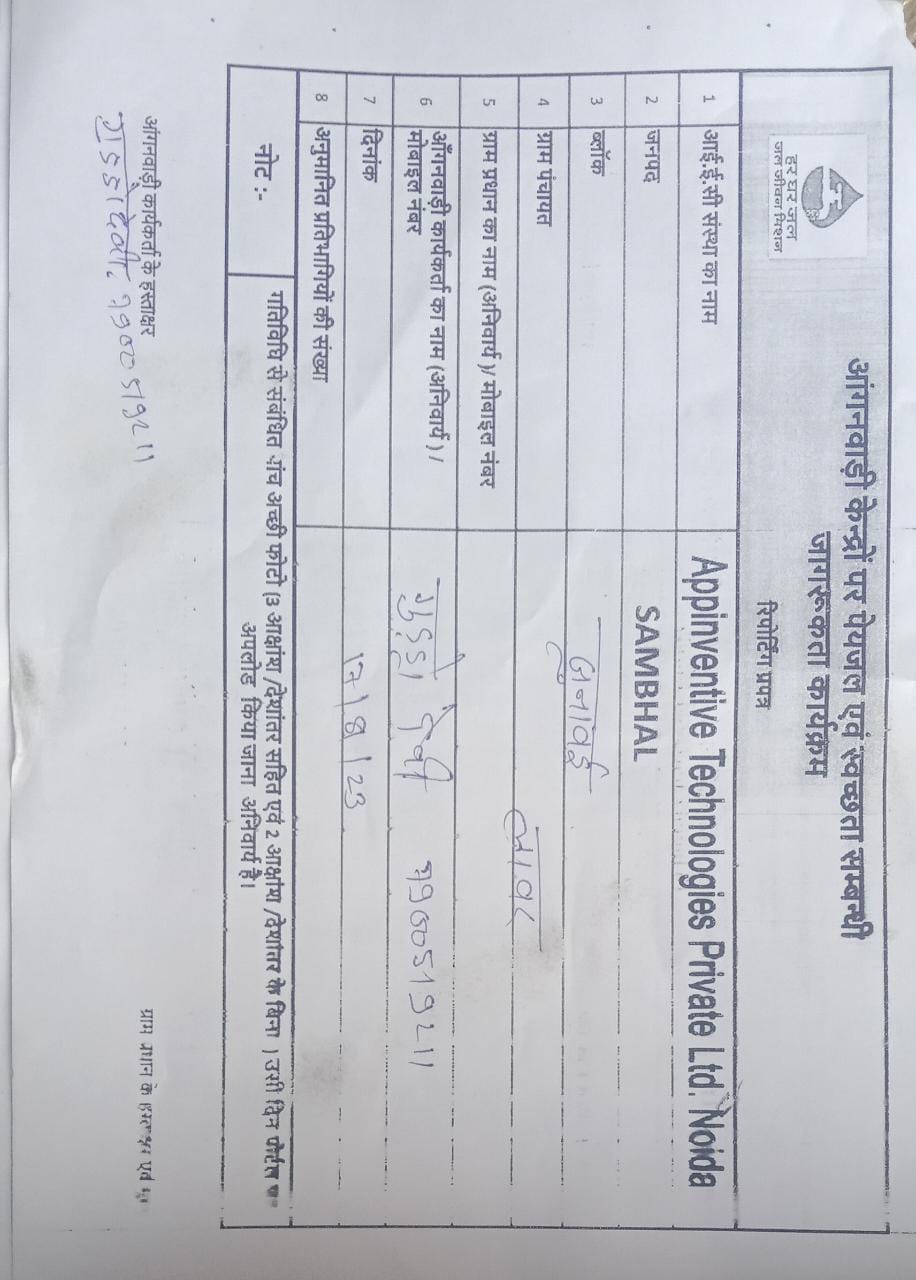 हर घर जल
जल जीवन मिशन
आंगनवाड़ी केन्द्रों पर पेयजल एवं स्वच्छता सम्बन्धी
जागरूकता कार्यक्रम
रिपोर्टिंग प्रपत्र
1 आई.ई.सी संस्था का नाम Appinventive Technologies Private Ltd. Noida
2 जनपद SAMBHAL
3 ब्लॉक जुनावई
4 ग्राम पंचायत
5 ग्राम प्रधान का नाम (अनिवार्य)/ मोबाइल नंबर
6 आँगनवाड़ी कार्यकर्ता का नाम (अनिवार्य) / गुड्डो देवी
मोबाइल नंबर
7 दिनांक 17/8/23
8 अनुमानित प्रतिभागियों की संख्या
नोट :- गतिविधि से संबंधित पांच अच्छी फोटो (3 आक्षांश /देशांतर सहित एवं 2 आक्षांश /देशांतर के बिना ) उसी दिन पोर्टल
अपलोड किया जाना अनिवार्य है।
आंगनवाड़ी कार्यकर्ता के हस्ताक्षर
ग्राम प्रधान के हस्ताक्षर एवं